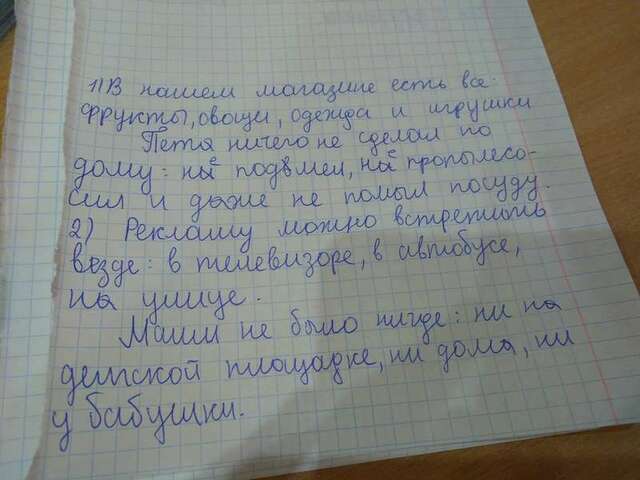 1) В нашем магазине есть все:
фрукты, овощи, одежда и игрушки
Петя ничего не сделал по
дому: не подмёл, не пропылесо-
сил и даже не помыл посуду.
2) Рекламу можно встретить
везде: в телевизоре, в автобусе,
на улице.
Маши не было нигде: ни на
детской площадке, ни дома, ни
у бабушки.